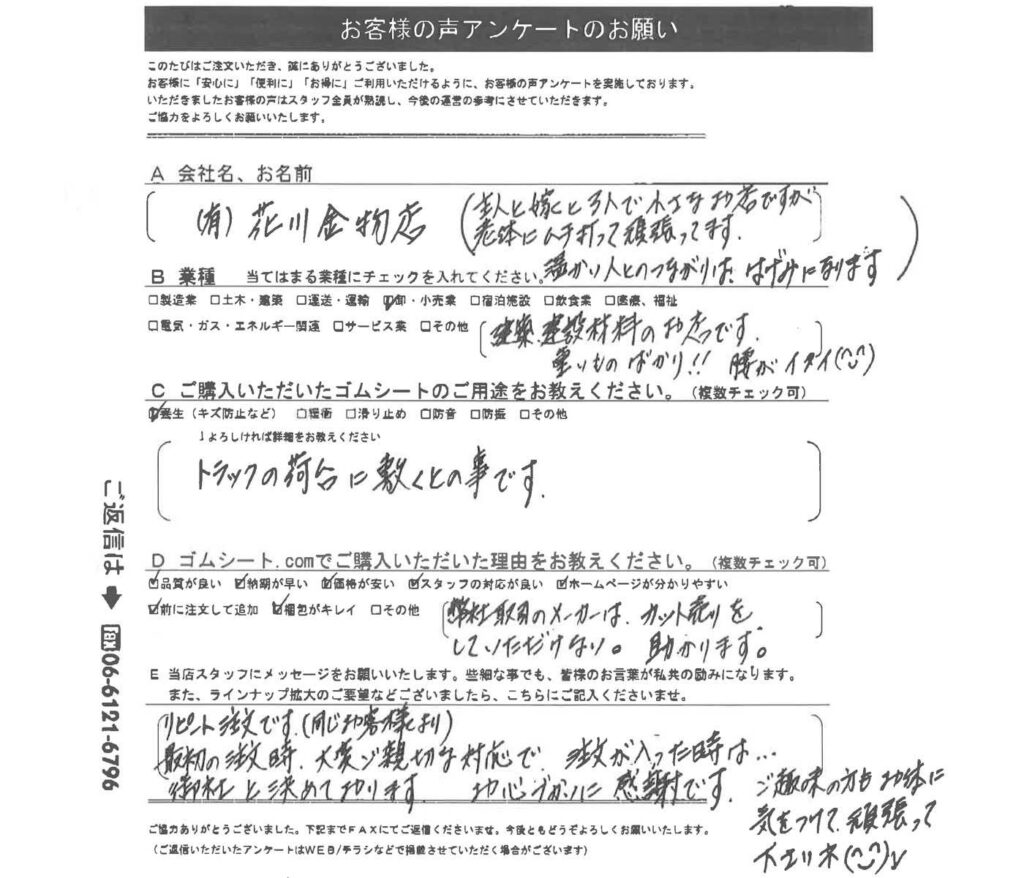 お客様の声アンケートのお願い
このたびはご注文いただき、誠にありがとうございました。
お客様に「安心に」「便利に」「お得に」ご利用いただけるように、お客様の声アンケートを実施しております。
いただきましたお客様の声はスタッフ全員が熟読し、今後の運営の参考にさせていただきます。
ご協力をよろしくお願いいたします。
A 会社名、お名前
(有) 花川金物店 (主人と嫁と3人で小さなお店ですが
老体にムチ打って頑張ってます.
温かい人とのつながりは、はげみになります)
B 業種 当てはまる業種にチェックを入れてください。
□製造業 □土木・建築 □運送・運輸 ☑卸・小売業 □宿泊施設 □飲食業 □医療、福祉
□電気・ガス・エネルギー関連 □サービス業 □その他 建築.建設材料のお店です.
重いものばかり!! 腰がイタイ(^^)
C ご購入いただいたゴムシートのご用途をお教えください。(複数チェック可)
☑養生(キズ防止など) □緩衝 □滑り止め □防音 □防振 □その他
↓よろしければ詳細をお教えください
トラックの荷台に敷くとの事です.
D ゴムシート.comでご購入いただいた理由をお教えください。(複数チェック可)
☑品質が良い ☑納期が早い ☑価格が安い ☑スタッフの対応が良い ☑ホームページが分かりやすい
☑前に注文して追加 ☑梱包がキレイ □その他 弊社取引のメーカーは、カット売りを
していただけない。 助かります。
E 当店スタッフにメッセージをお願いいたします。些細な事でも、皆様のお言葉が私共の励みになります。
また、ラインナップ拡大のご要望などございましたら、こちらにご記入くださいませ。
リピート注文です.(同じお客様より)
最初の注文時、大変ご親切な対応で 注文が入った時は…
御社と決めております。 お心づかいに感謝です。
ご趣味の方もお体に
気をつけて、頑張って
下さいネ(^^)v
ご協力ありがとうございました。下記までFAXにてご返信くださいませ。今後ともどうぞよろしくお願いいたします。
(ご返信いただいたアンケートはWEB/チラシなどで掲載させていただく場合がございます)
ご返信は➡fax06-6121-6796